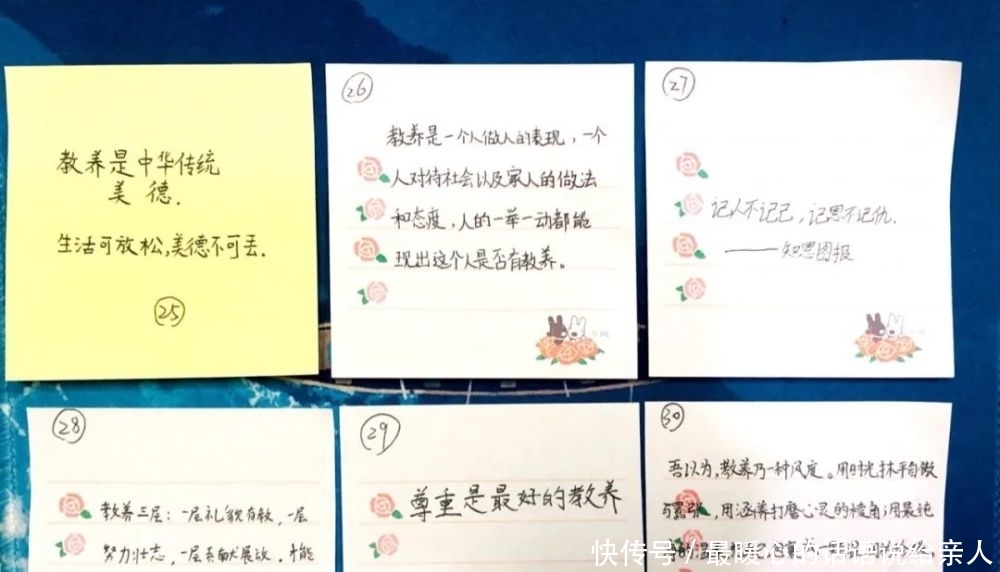 教养是中华传统
美德.
生活可放松,美德不可丢.
25
26
教养是一个人做人的表现，一个
人对待社会以及家人的做法
和态度，人的一举一动都能
现出这个人是否有教养。
27
记人不记己，记恩不记仇.
——知恩图报
28
教养三层：一层礼貌有教，一层
努力壮志，一层贡献展放.才能
29
尊重是最好的教养
30
吾以为,教养乃一种风度。用时光抹平自傲
与嚣张，用涵养打磨心灵的棱角;用最纯
快传号 / 最暖心的话语说给亲人